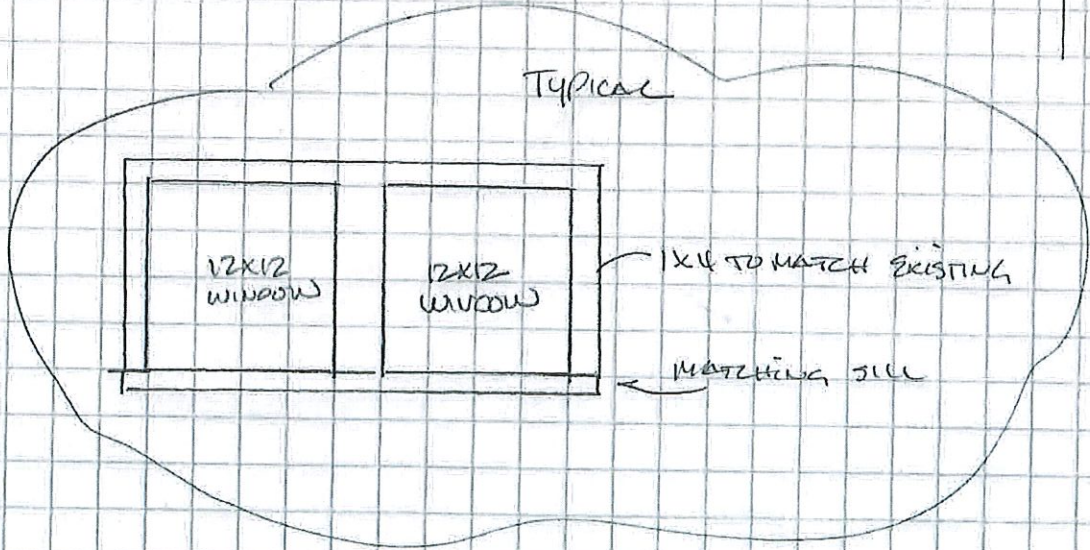 TYPICAL
12X12
WINDOW
12X12
WINDOW
1X4 TO MATCH EXISTING
MATCHING SILL